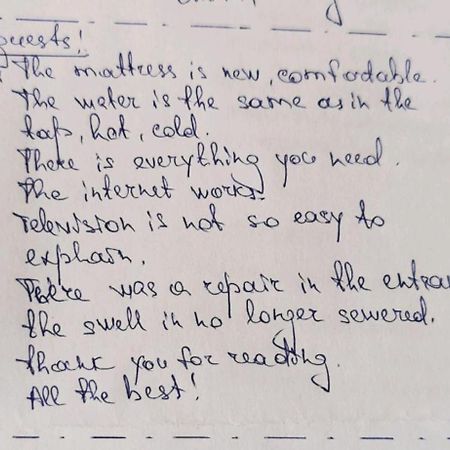 guests!
The mattress is new, comfodable.
The water is the same as in the
tap, hot, cold.
There is everything you need.
The internet works.
Television is not so easy to
explain.
There was a repair in the entran
the swell in no longer sewered.
Thank you for reading.
All the best!